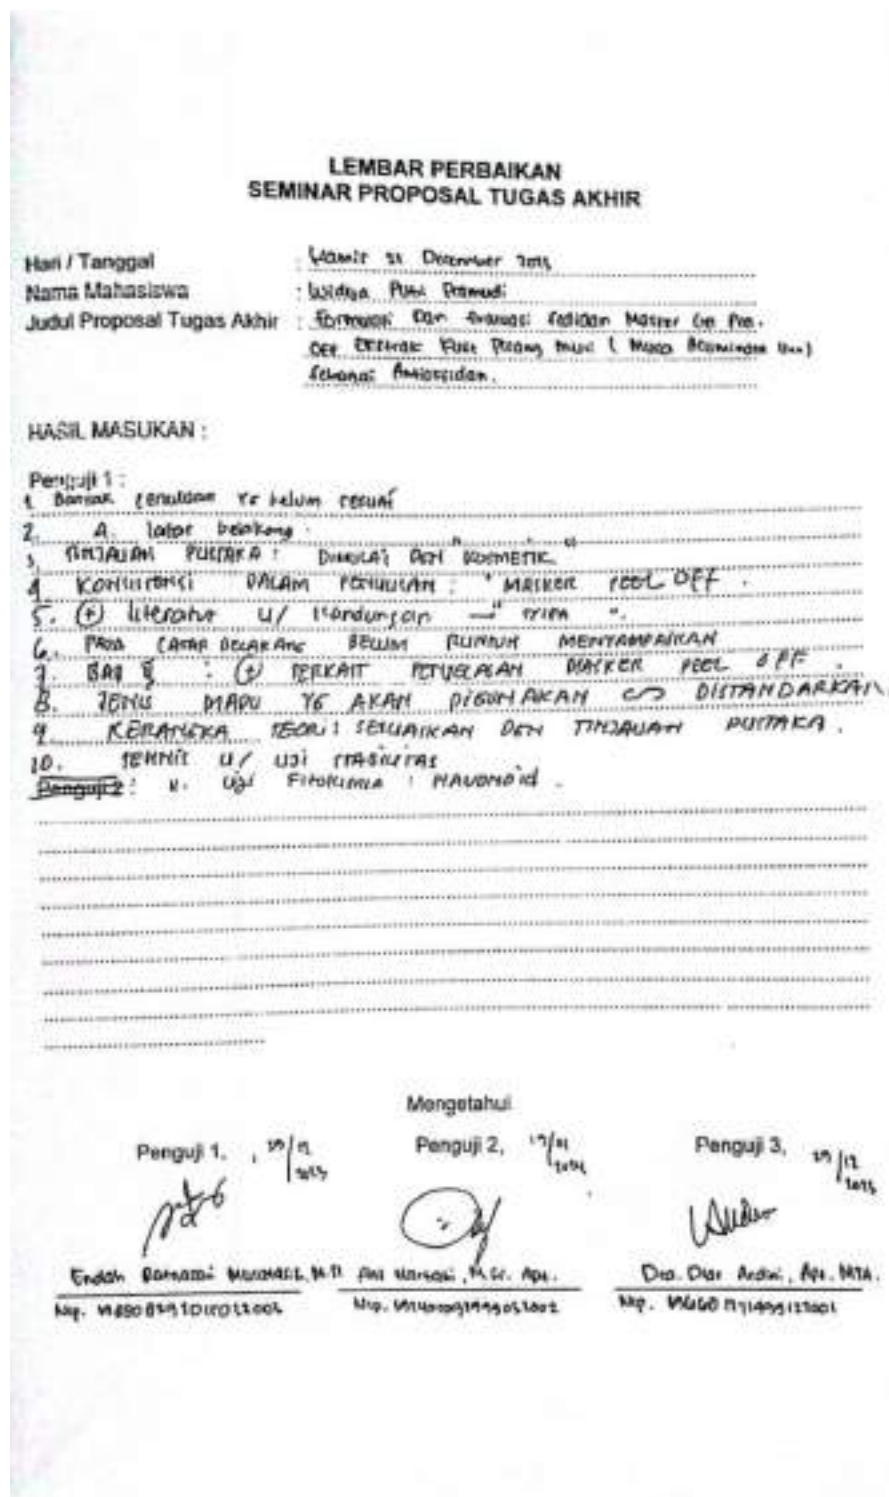 LEMBAR PERBAIKAN
SEMINAR PROPOSAL TUGAS AKHIR
Hari / Tanggal : Kamis 21 December 2023
Nama Mahasiswa : Widya Putri Pramudi
Judul Proposal Tugas Akhir : Formulasi Dan Evaluasi Sediaan Masker Gel Peel-
OFF Ekstrak Kulit Pisang Muli ( Musa Acuminata Linn)
Sebagai Antioksidan.
HASIL MASUKAN :
Penguji 1 :
1. Banyak penulisan yg belum sesuai
2. A. latar belakang.
3. TINJAUAN PUSTAKA : DIMULAI DEN KOSMETIK
4. KONSISTENSI DALAM PENULISAN : " MASKER PEEL OFF .
5. (+) literatur u/ kandungan
6. PADA LATAR BELAKANG BELUM RUNTUH MENYAMPAIKAN
7. BAB : (+) TERKAIT PENJELASAN MASKER PEEL OFF .
8. JENIS MADU YG AKAN DIGUNAKAN DISTANDARKAN
9. KERANGKA TEORI : SESUAIKAN DEN TINJAUAN PUSTAKA .
10. TEKNIS u/ UJI STABILITAS
Penguji 2 : 11. Uji Fitokimia : FLAVONOID .
Mengetahui
Penguji 1, Penguji 2, Penguji 3,
Endah Ratnasari Ani Hartati, M.Si. Apt. Dra. Dias Ardini, Apt. MTA.
Nip. Nip. Nip.